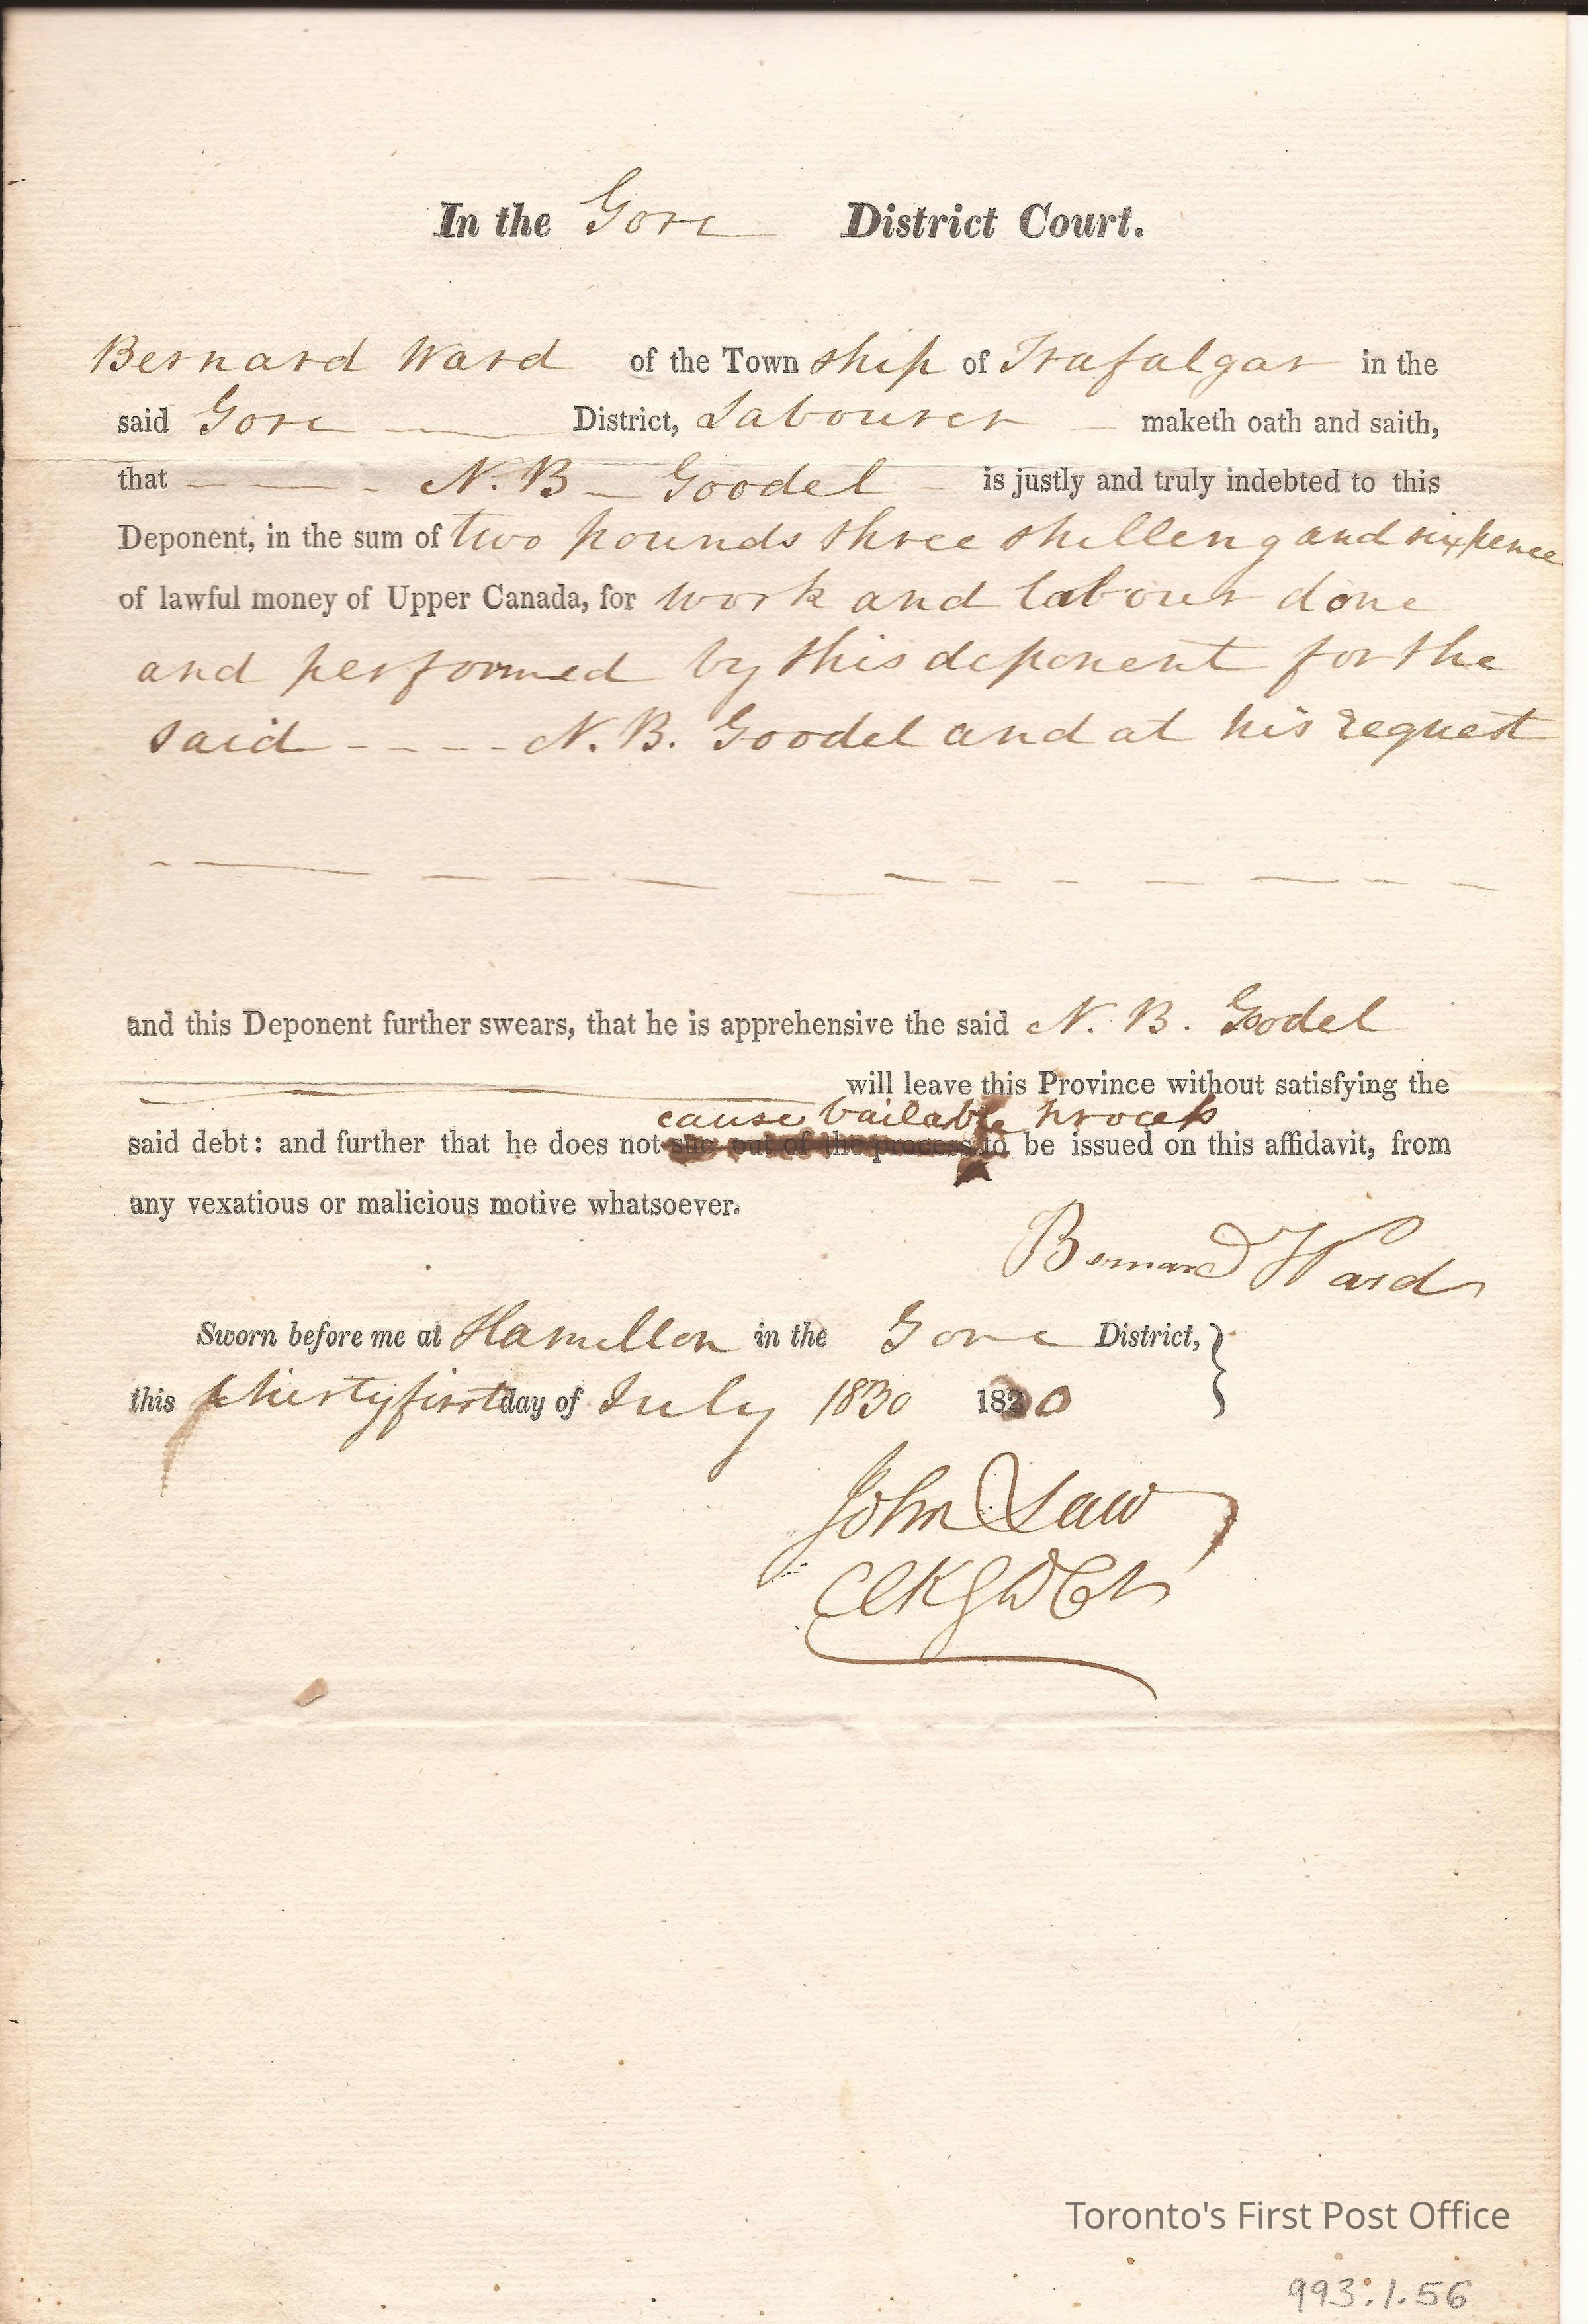 In the Gore District Court.
Bernard Ward of the Town ship of Trafalgar in the
said Gore District, Labourer maketh oath and saith,
that - - - N. B - Goodel - is justly and truly indebted to this
Deponent, in the sum of two pounds three shilleng and sixpence
of lawful money of Upper Canada, for work and labour done
and performed by this deponent for the
said - - - - N. B. Goodel and at his request
and this Deponent further swears, that he is apprehensive the said N. B. Goodel
will leave this Province without satisfying the
cause bailable process
said debt: and further that he does not sue out of the process to be issued on this affidavit, from
any vexatious or malicious motive whatsoever.
Bernard Ward
Sworn before me at Hamilton in the Gore District,
this thirtyfirst day of July 1830 1830
John Law
Clk G D Ct
Toronto's First Post Office
993.1.56